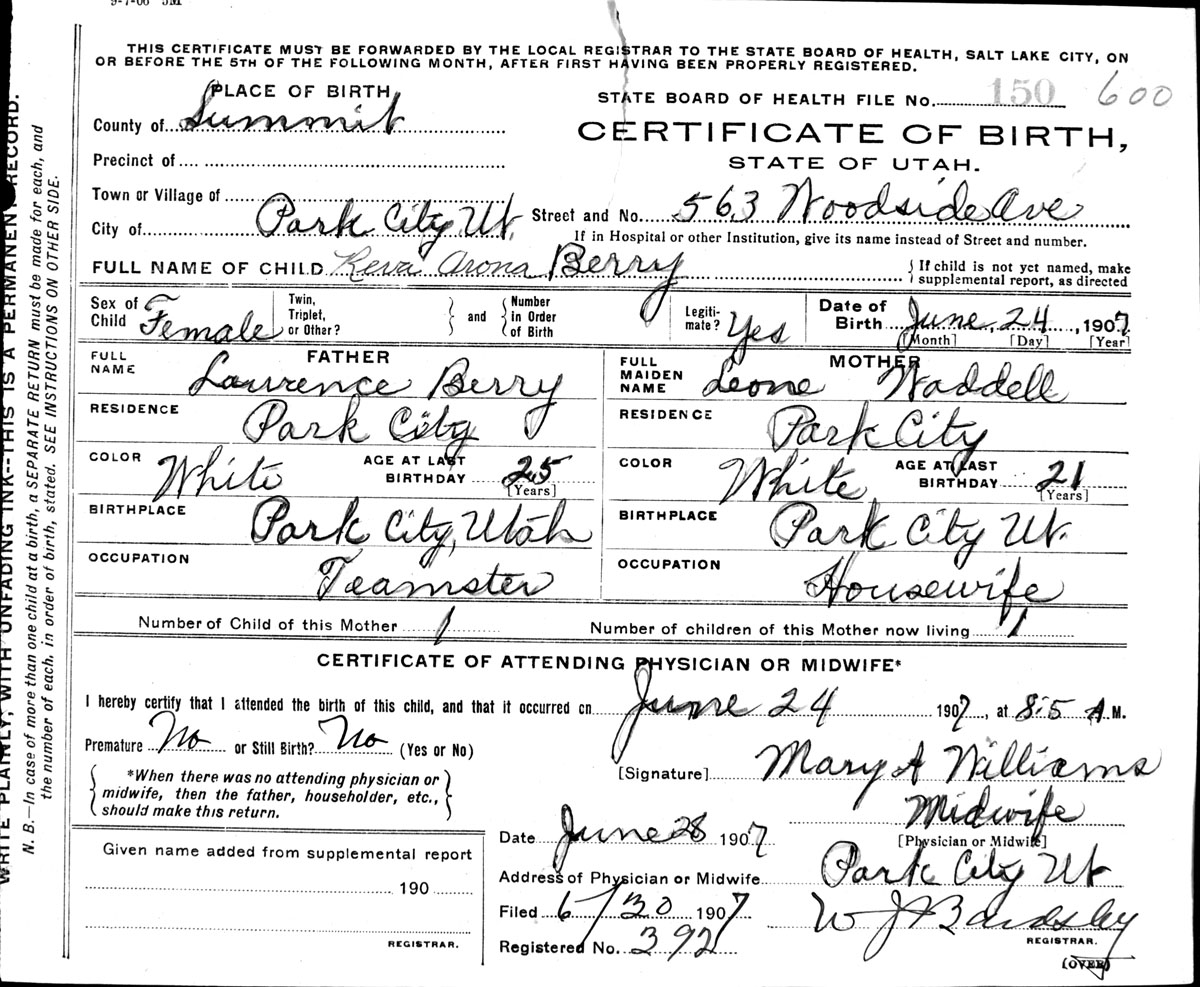 9-7-06 5M
THIS CERTIFICATE MUST BE FORWARDED BY THE LOCAL REGISTRAR TO THE STATE BOARD OF HEALTH, SALT LAKE CITY, ON
OR BEFORE THE 5TH OF THE FOLLOWING MONTH, AFTER FIRST HAVING BEEN PROPERLY REGISTERED.
PLACE OF BIRTH
STATE BOARD OF HEALTH FILE No. 150 600
County of Summit
CERTIFICATE OF BIRTH,
STATE OF UTAH.
Precinct of
Town or Village of
City of Park City Ut. Street and No. 563 Woodside Ave
If in Hospital or other Institution, give its name instead of Street and number.
FULL NAME OF CHILD Reva Arona Berry { If child is not yet named, make
supplemental report, as directed
Sex of Child Female Twin, Triplet, or Other? } and { Number in Order of Birth Legiti-mate? Yes Date of Birth June 24, 1907
[Month] [Day] [Year]
FATHER MOTHER
FULL NAME Laurence Berry FULL MAIDEN NAME Leone Waddell
RESIDENCE Park City RESIDENCE Park City
COLOR White AGE AT LAST BIRTHDAY 25 [Years] COLOR White AGE AT LAST BIRTHDAY 21 [Years]
BIRTHPLACE Park City, Utah BIRTHPLACE Park City Ut.
OCCUPATION Teamster OCCUPATION Housewife
Number of Child of this Mother 1 Number of children of this Mother now living 1
CERTIFICATE OF ATTENDING PHYSICIAN OR MIDWIFE*
I hereby certify that I attended the birth of this child, and that it occurred on June 24 1907, at 8:5 A.M.
Premature No or Still Birth? No (Yes or No)
[Signature] Mary A Williams
*When there was no attending physician or
midwife, then the father, householder, etc.,
should make this return.
Midwife
[Physician or Midwife]
Date June 28 1907
Address of Physician or Midwife Park City Ut
Filed 6/30 1907 W J Bardsley
REGISTRAR.
Registered No. 392
(OVER)
Given name added from supplemental report
190
REGISTRAR.
WRITE PLAINLY, WITH UNFADING INK--THIS IS A PERMANENT RECORD.
N. B.—In case of more than one child at a birth, a SEPARATE RETURN must be made for each, and
the number of each, in order of birth, stated. SEE INSTRUCTIONS ON OTHER SIDE.